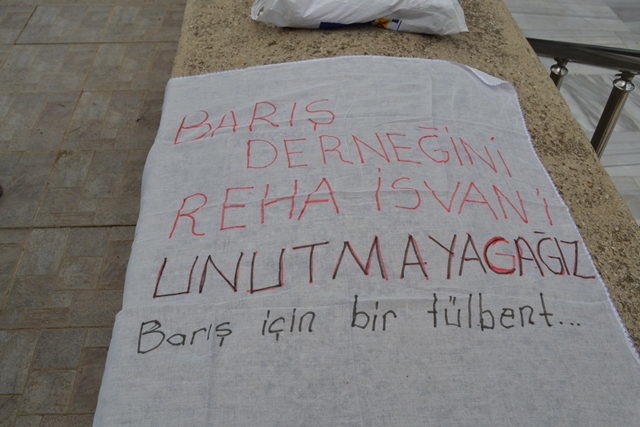 BARIŞ
DERNEĞİNİ
REHA İSVAN'ı
UNUTMAYAGAĞIZ
Barış için bir tülbent...